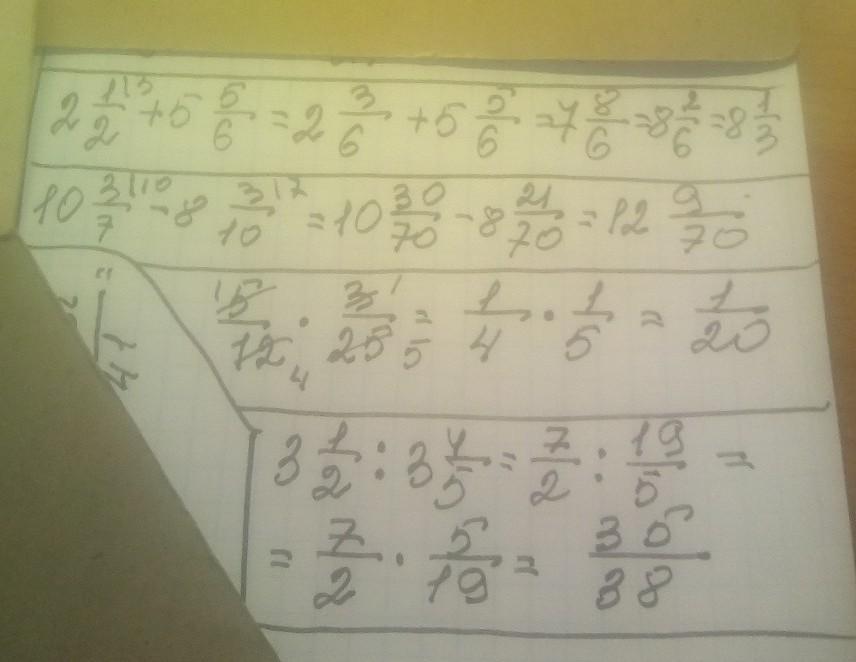 2 1/2 |3 + 5 5/6 = 2 3/6 + 5 5/6 = 7 8/6 = 8 2/6 = 8 1/3
10 3/7 |10 - 8 3/10 |7 = 10 30/70 - 8 21/70 = 12 9/70
5/12 · 3/25 = 1/4 · 1/5 = 1/20
3 1/2 : 3 4/5 = 7/2 : 19/5 =
= 7/2 · 5/19 = 35/38